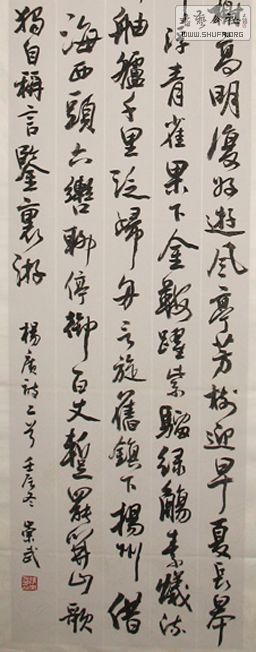 榭高明復好遊風亭芳樹迎早夏長皋
浮青雀果下金鞍躍紫騮綠觴素蟻流
舳艫千里泛歸舟言旋舊鎮下揚州借
海西頭六轡聊停御百丈暫罷開山歌
獨自稱言鑒裏游
楊廣詩二首 壬辰冬 崇武